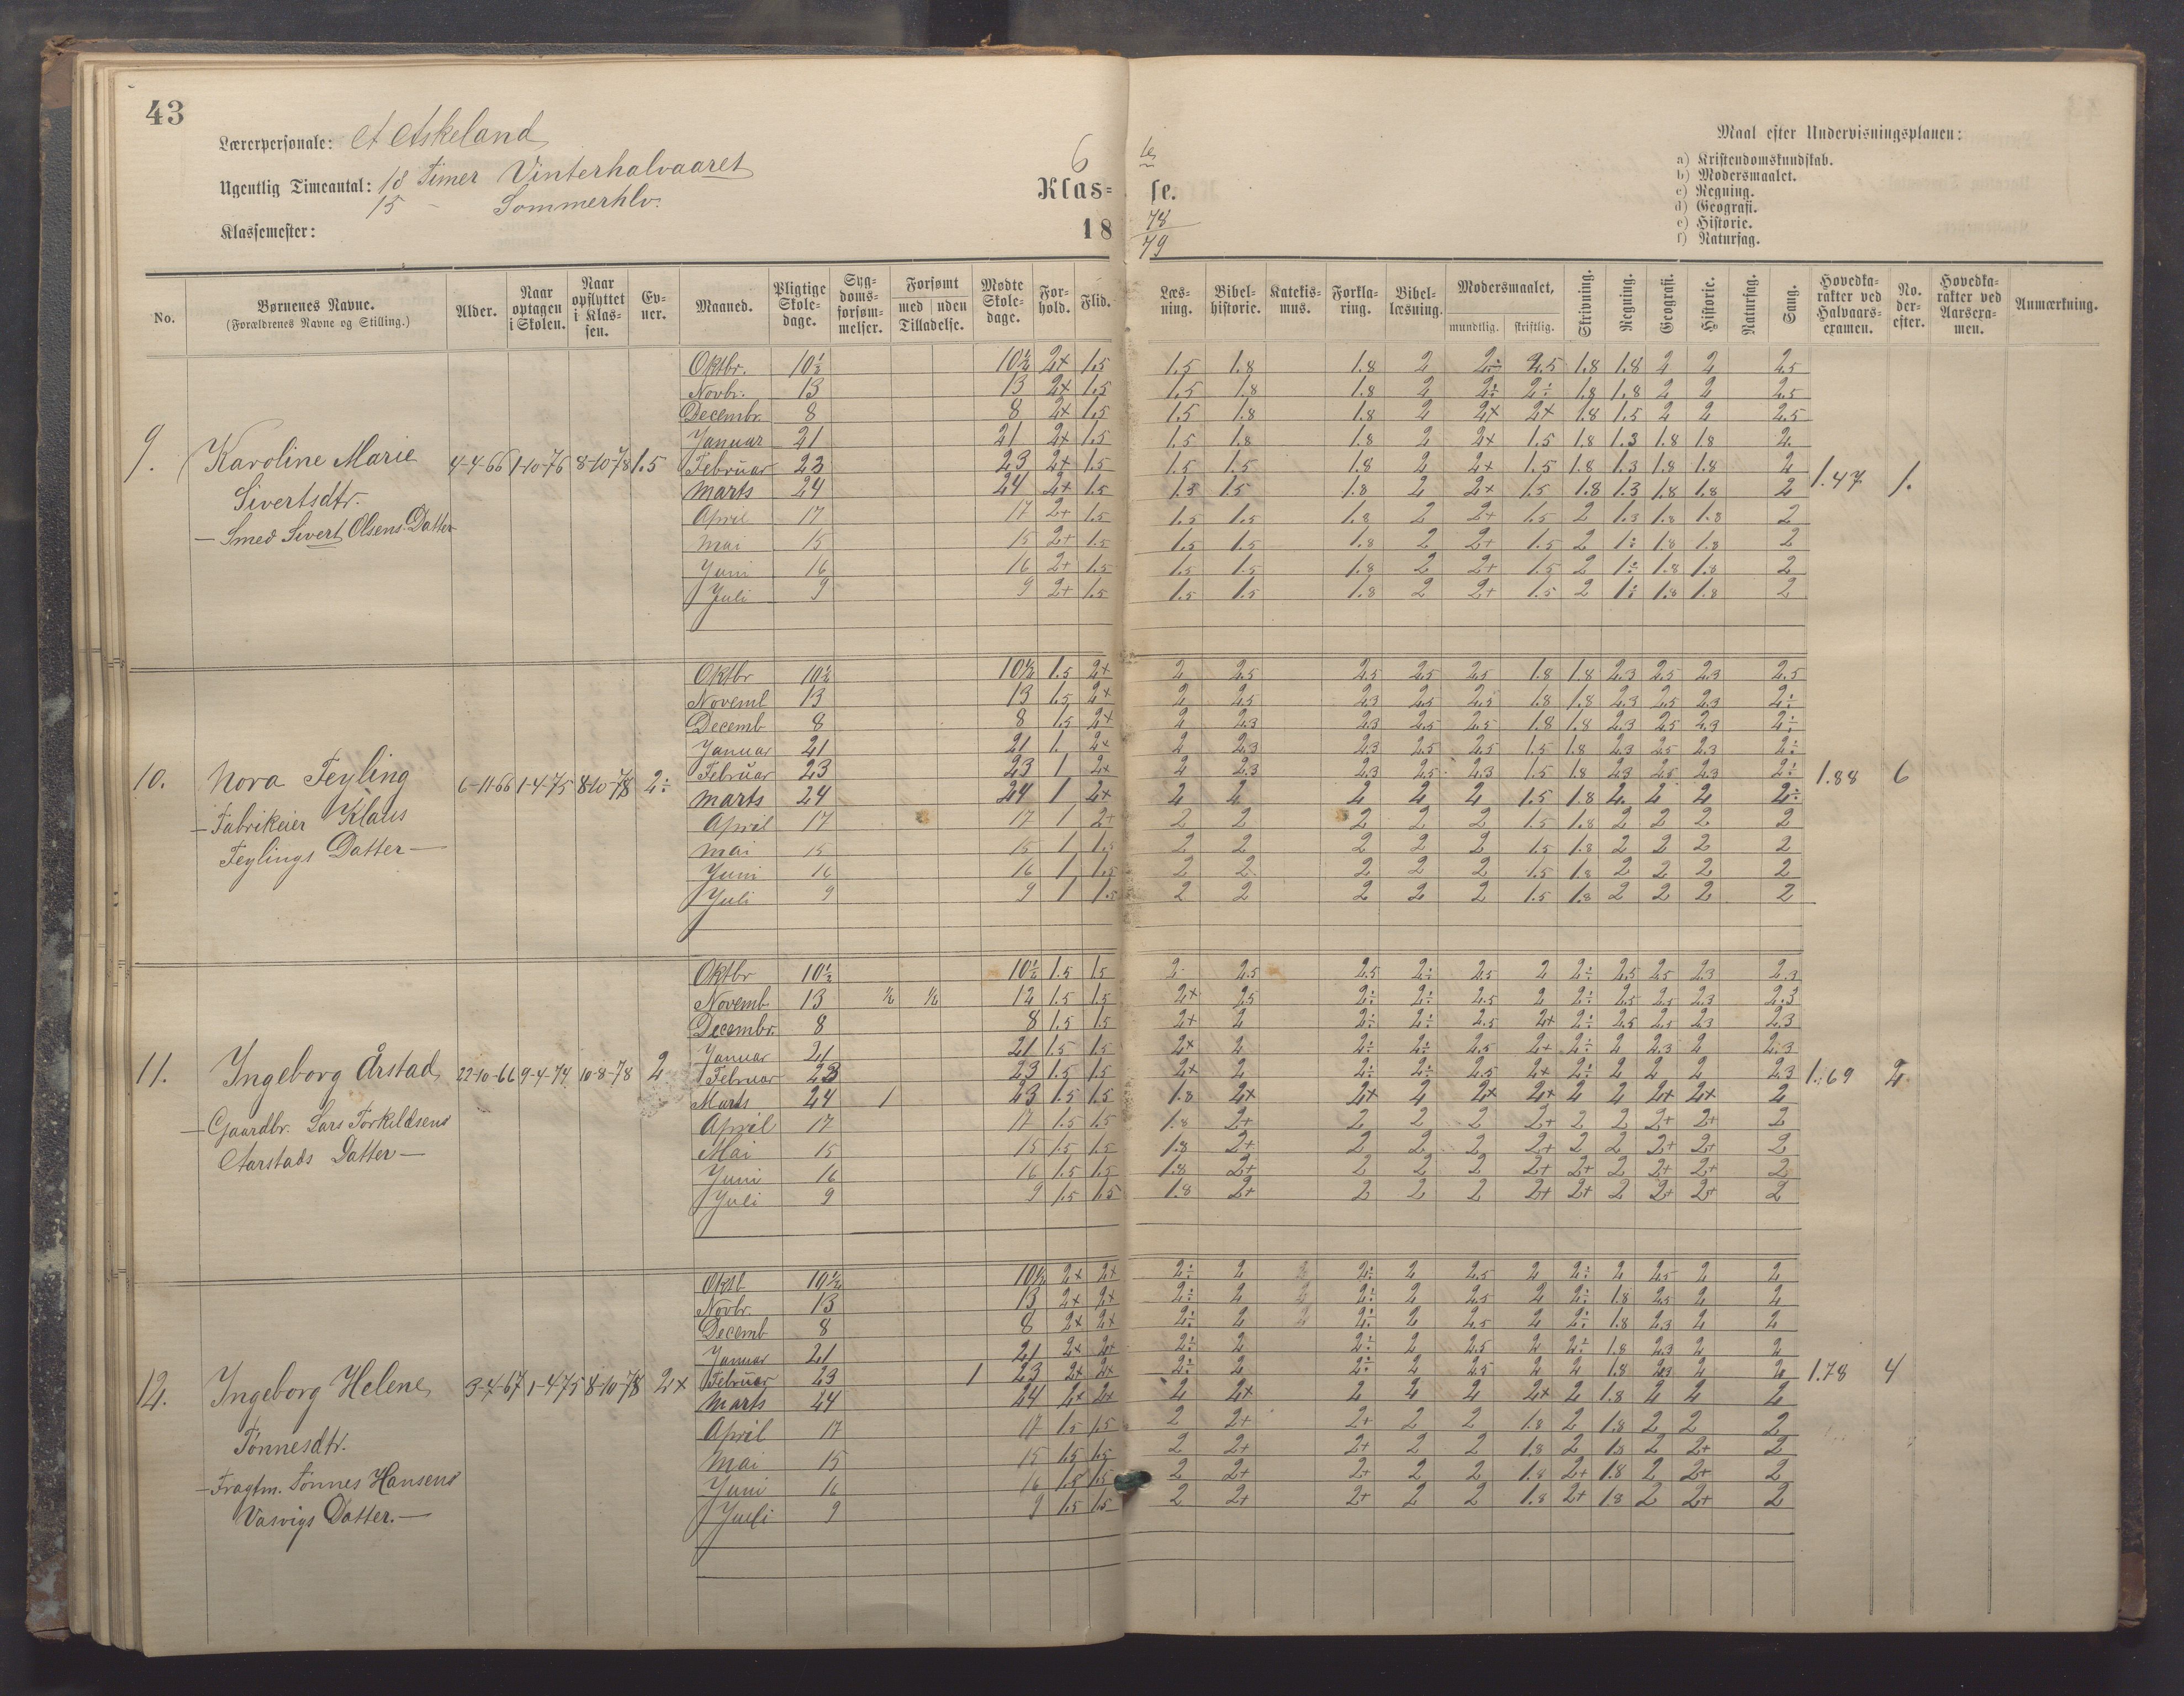 43
Lærerpersonale: A Askeland
Ugentlig Timeantal: 18 Timer Vinterhalvaaret
15 — Sommerhlv.
Klassemester:
6te
Klas= se.
18 78/79
Maal efter Undervisningsplanen:
a) Kristendomskundskab.
b) Modersmaalet.
c) Regning.
d) Geografi.
e) Historie.
f) Naturfag.
No. Børnenes Navne. (Forældrenes Navne og Stilling.) Alder. Naar optagen i Skolen. Naar opflyttet i Klassen. Evner. Maaned. Pligtige Skoledage. Sygdomsforsømmelser. Forsømt med uden Tilladelse. Mødte Skoledage. Forhold. Flid. Læsning. Bibelhistorie. Katekismus. Forklaring. Bibellæsning. Modersmaalet, mundtlig. skriftlig. Skrivning. Regning. Geografi. Historie. Naturfag. Sang. Hovedkarakter ved Halvaarsexamen. No. derefter. Hovedkarakter ved Aarsexamen. Anmærkning.
9. Karoline Marie Sivertsdtr. — Smed Sivert Olsens Datter 4-4-66 1-10-76 8-10-78 1.5 1.47 1.
Oktbr. 10½ 10½ 2+ 1.5 1.5 1.8 1.8 2 2÷ 2.5 1.8 1.8 2 2 2.5
Novbr. 13 13 2+ 1.5 1.5 1.8 1.8 2 2÷ 2÷ 1.8 1.8 2 2 2.5
Decembr. 8 8 2+ 1.5 1.5 1.8 1.8 2 2+ 2+ 1.8 1.5 2 2 2.5
Januar 21 21 2+ 1.5 1.5 1.8 1.8 2 2+ 1.5 1.8 1.3 1.8 1.8 2
Februar 23 23 2+ 1.5 1.5 1.5 1.8 2 2+ 1.5 1.8 1.3 1.8 1.8 2
Marts 24 24 2+ 1.5 1.5 1.5 1.8 2 2+ 1.5 1.8 1.3 1.8 1.8 2
April 17 17 2+ 1.5 1.5 1.5 1.8 2 2+ 1.5 2 1.3 1.8 1.8 2
Mai 15 15 2+ 1.5 1.5 1.5 1.8 2 2+ 1.5 2 1÷ 1.8 1.8 2
Juni 16 16 2+ 1.5 1.5 1.5 1.8 2 2+ 1.5 2 1÷ 1.8 1.8 2
Juli 9 9 2+ 1.5 1.5 1.5 1.8 2 2+ 1.5 2 1÷ 1.8 1.8 2
10. Nora Feyling — Fabrikeier Klaus Feylings Datter — 6-11-66 1-4-75 8-10-78 2÷ 1.88 6
Oktbr 10½ 10½ 1.5 2+ 2 2.5 2.5 2.5 2.5 1.8 1.8 2.3 2.5 2.3 2.5
Novemb 13 13 1.5 2+ 2 2.5 2.3 2.5 2.5 1.8 1.8 2.3 2.5 2.3 2÷
Decemb 8 8 1.5 2+ 2 2.3 2.3 2.5 2.5 1.8 1.8 2.3 2.5 2.3 2÷
Januar 21 21 1. 2+ 2 2.3 2.3 2.5 2.5 1.5 1.8 2.3 2.5 2.3 2÷
Februar 23 23 1 2+ 2 2.3 2.3 2.5 2.3 1.5 1.8 2.3 2.5 2.3 2÷
Marts 24 24 1 2+ 2 2 2 2 2 1.5 1.8 2 2 2 2÷
April 17 17 1 2+ 2 2 2 2 2 1.5 1.8 2 2 2 2
Mai 15 15 1 1.5 2 2 2 2 2 1.5 1.8 2 2 2 2
Juni 16 16 1 1.5 2 2 2 2 2 1.5 1.8 2 2 2 2
Juli 9 9 1 1.5 2 2 2 2 2 1.5 1.8 2 2 2 2
11. Ingeborg Årstad, — Gaardbr. Lars Torkildsens Aarstads Datter — 22-10-66 9-4-74 10-8-78 2 1.69 2.
Oktbr 10½ 10½ 1.5 1.5 2 2.5 2.5 2÷ 2.5 2 2÷ 2.5 2.5 2.3 2.3
Novemb 13 ½ ½ 12 1.5 1.5 2+ 2.5 2÷ 2÷ 2.5 2 2÷ 2.5 2.5 2.3 2.3
Decembr. 8 8 1.5 1.5 2+ 2 2÷ 2÷ 2.5 2+ 2÷ 2.5 2.5 2.3 2.3
Januar 21 21 1.5 1.5 2+ 2 2÷ 2÷ 2.5 2+ 2÷ 2 2.3 2 2.3
Februar 23 23 1.5 1.5 2+ 2 2÷ 2÷ 2.5 2+ 2÷ 2 2 2 2.3
Marts 24 1 23 1.5 1.5 1.8 2+ 2+ 2 2+ 2+ 2 2 2+ 2+ 2
April 17 17 1.5 1.5 1.8 2+ 2 2 2 2+ 2 2 2+ 2+ 2
Mai 15 15 1.5 1.5 1.8 2+ 2 2 2 2+ 2 2 2+ 2+ 2
Juni 16 16 1.5 1.5 1.8 2+ 2 2 2 2+ 2+ 2 2+ 2+ 2
Juli 9 9 1.5 1.5 1.8 2+ 2 2 2 2+ 2+ 2 2+ 2+ 2
12. Ingeborg Helene Tönnesdtr. — Fragtm. Tönnes Hansens Vasvigs Datter. — 3-4-67 1-4-75 8-10-78 2+ 1.78 4
Oktb 10½ 10½ 2+ 2+ 2÷ 2 2 2÷ 2 2.5 2 2÷ 2 2.5 2 2
Novbr. 13 13 2+ 2+ 2÷ 2 2 2÷ 2 2.5 2 2÷ 1.8 2.5 2 2
Decemb 8 8 2+ 2+ 2÷ 2 2 2÷ 2 2.5 2 2÷ 1.8 2.3 2 2
Januar 21 21 2+ 2+ 2÷ 2 2÷ 2 2.5 2 2÷ 1.8 2.3 2 2
Februar 23 1 23 2+ 2+ 2÷ 2 2÷ 2 2.5 2 2 1.8 2.3 2 2
Marts 24 24 2+ 2+ 2 2+ 2 2 2 2+ 2 1.8 2 2 2
April 17 17 1.5 1.5 2 2+ 2+ 2 2 1.8 2 1.8 2 2 2
Mai 15 15 1.5 1.5 2 2+ 2+ 2 2 1.8 2 1.8 2 2+ 2
Juni 16 16 1.5 1.5 2 2+ 2+ 2 2 1.8 2+ 1.8 2 2+ 2
Juli 9 9 1.5 1.5 2 2+ 2+ 2 2 1.8 2+ 1.8 2 2+ 2